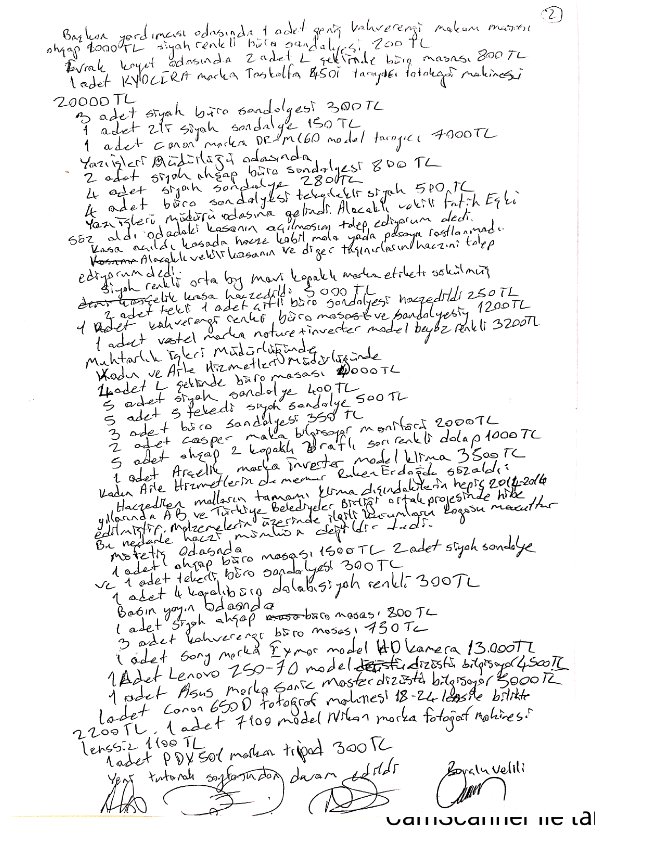 2
Başkan yardımcısı odasında 1 adet geniş kahverengi makam masası
ahşap 2000TL siyah renkli büro sandalyesi 200TL
Evrak kayıt odasında 2 adet L şeklinde büro masası 800TL
1 adet KYOCERA marka Taskalfa 450i tarayıcı fotokopi makinesi
20000TL
3 adet siyah büro sandalyesi 300TL
1 adet siyah sandalye 150TL
1 adet Canon marka DR-M160 model tarayıcı 7000TL
Yazı işleri Müdürlüğü odasında
2 adet siyah ahşap büro sandalyesi 800TL
4 adet siyah sandalye 280TL
4 adet büro sandalyesi tekerlekli siyah 500TL
Yazı işleri müdürü odasına gelindi. Alacaklı vekili Fatih
söz aldı odadaki kasanın açılmasını talep ediyorum dedi.
Kasa açıldı kasada hacze kabil mala yada paraya rastlanmadı.
Alacaklı vekili kasanın ve diğer taşınırların haczini talep
ediyorum dedi.
Siyah renkli orta boy mavi kapaklı marka etiketi sökülmüş
çelik kasa haczedildi 5000TL
2 adet tekli 1 adet çiftli büro sandalyesi haczedildi 250TL
1 adet kahverengi renkli büro masası ve sandalyesi 1200TL
1 adet vestel marka nature inverter model beyaz renkli 3200TL
Muhtarlık İşleri Müdürlüğünde
Kadın ve Aile Hizmetleri Müdürlüğünde
4 adet L şeklinde büro masası 4000TL
5 adet siyah sandalye 400TL
5 adet siyah sandalye 500TL
3 adet büro sandalyesi 350TL
2 adet casper marka bilgisayar monitörü 2000TL
5 adet ahşap 2 kapaklı 3 raflı sarı renkli dolap 1000TL
1 adet Arçelik marka inverter model klima 3500TL
Kadın Aile Hizmetlerinde memur Erdoğdu söz aldı:
Haczedilen malların tamamı klima dışındakilerin hepsi 2014-2016
yıllarında AB ve Türkiye Belediyeler Birliği ortak projesinde hibe
edilmiştir. Malzemelerin üzerinde ilgili kurumların logosu mevcuttur
Bu nedenle haczi mümkün değildir dedi.
Müfettiş Odasında
1 adet ahşap büro masası 1500TL 2 adet siyah sandalye
ve 1 adet tekerli büro sandalyesi 300TL
1 adet 4 kapalı büro dolabı siyah renkli 300TL
Basın yayın Odasında
1 adet siyah ahşap büro masası 800TL
3 adet kahverengi büro masası 750TL
1 adet Sony marka Exmor model HD kamera 13.000TL
1 Adet Lenovo Z50-70 model dizüstü bilgisayar 4500TL
1 adet Asus marka Sonic Master dizüstü bilgisayar 5000TL
1 adet Canon 650D fotoğraf makinesi 18-24 lensi ile birlikte
2200TL. 1 adet 7100 model Nikon marka fotoğraf makinesi
lenssiz 1100TL
1 adet PDX501 markalı tripad 300TL
Yeni tutanak sayfasından devam edildi
Borçlu Vekili
CamScanner ile ta